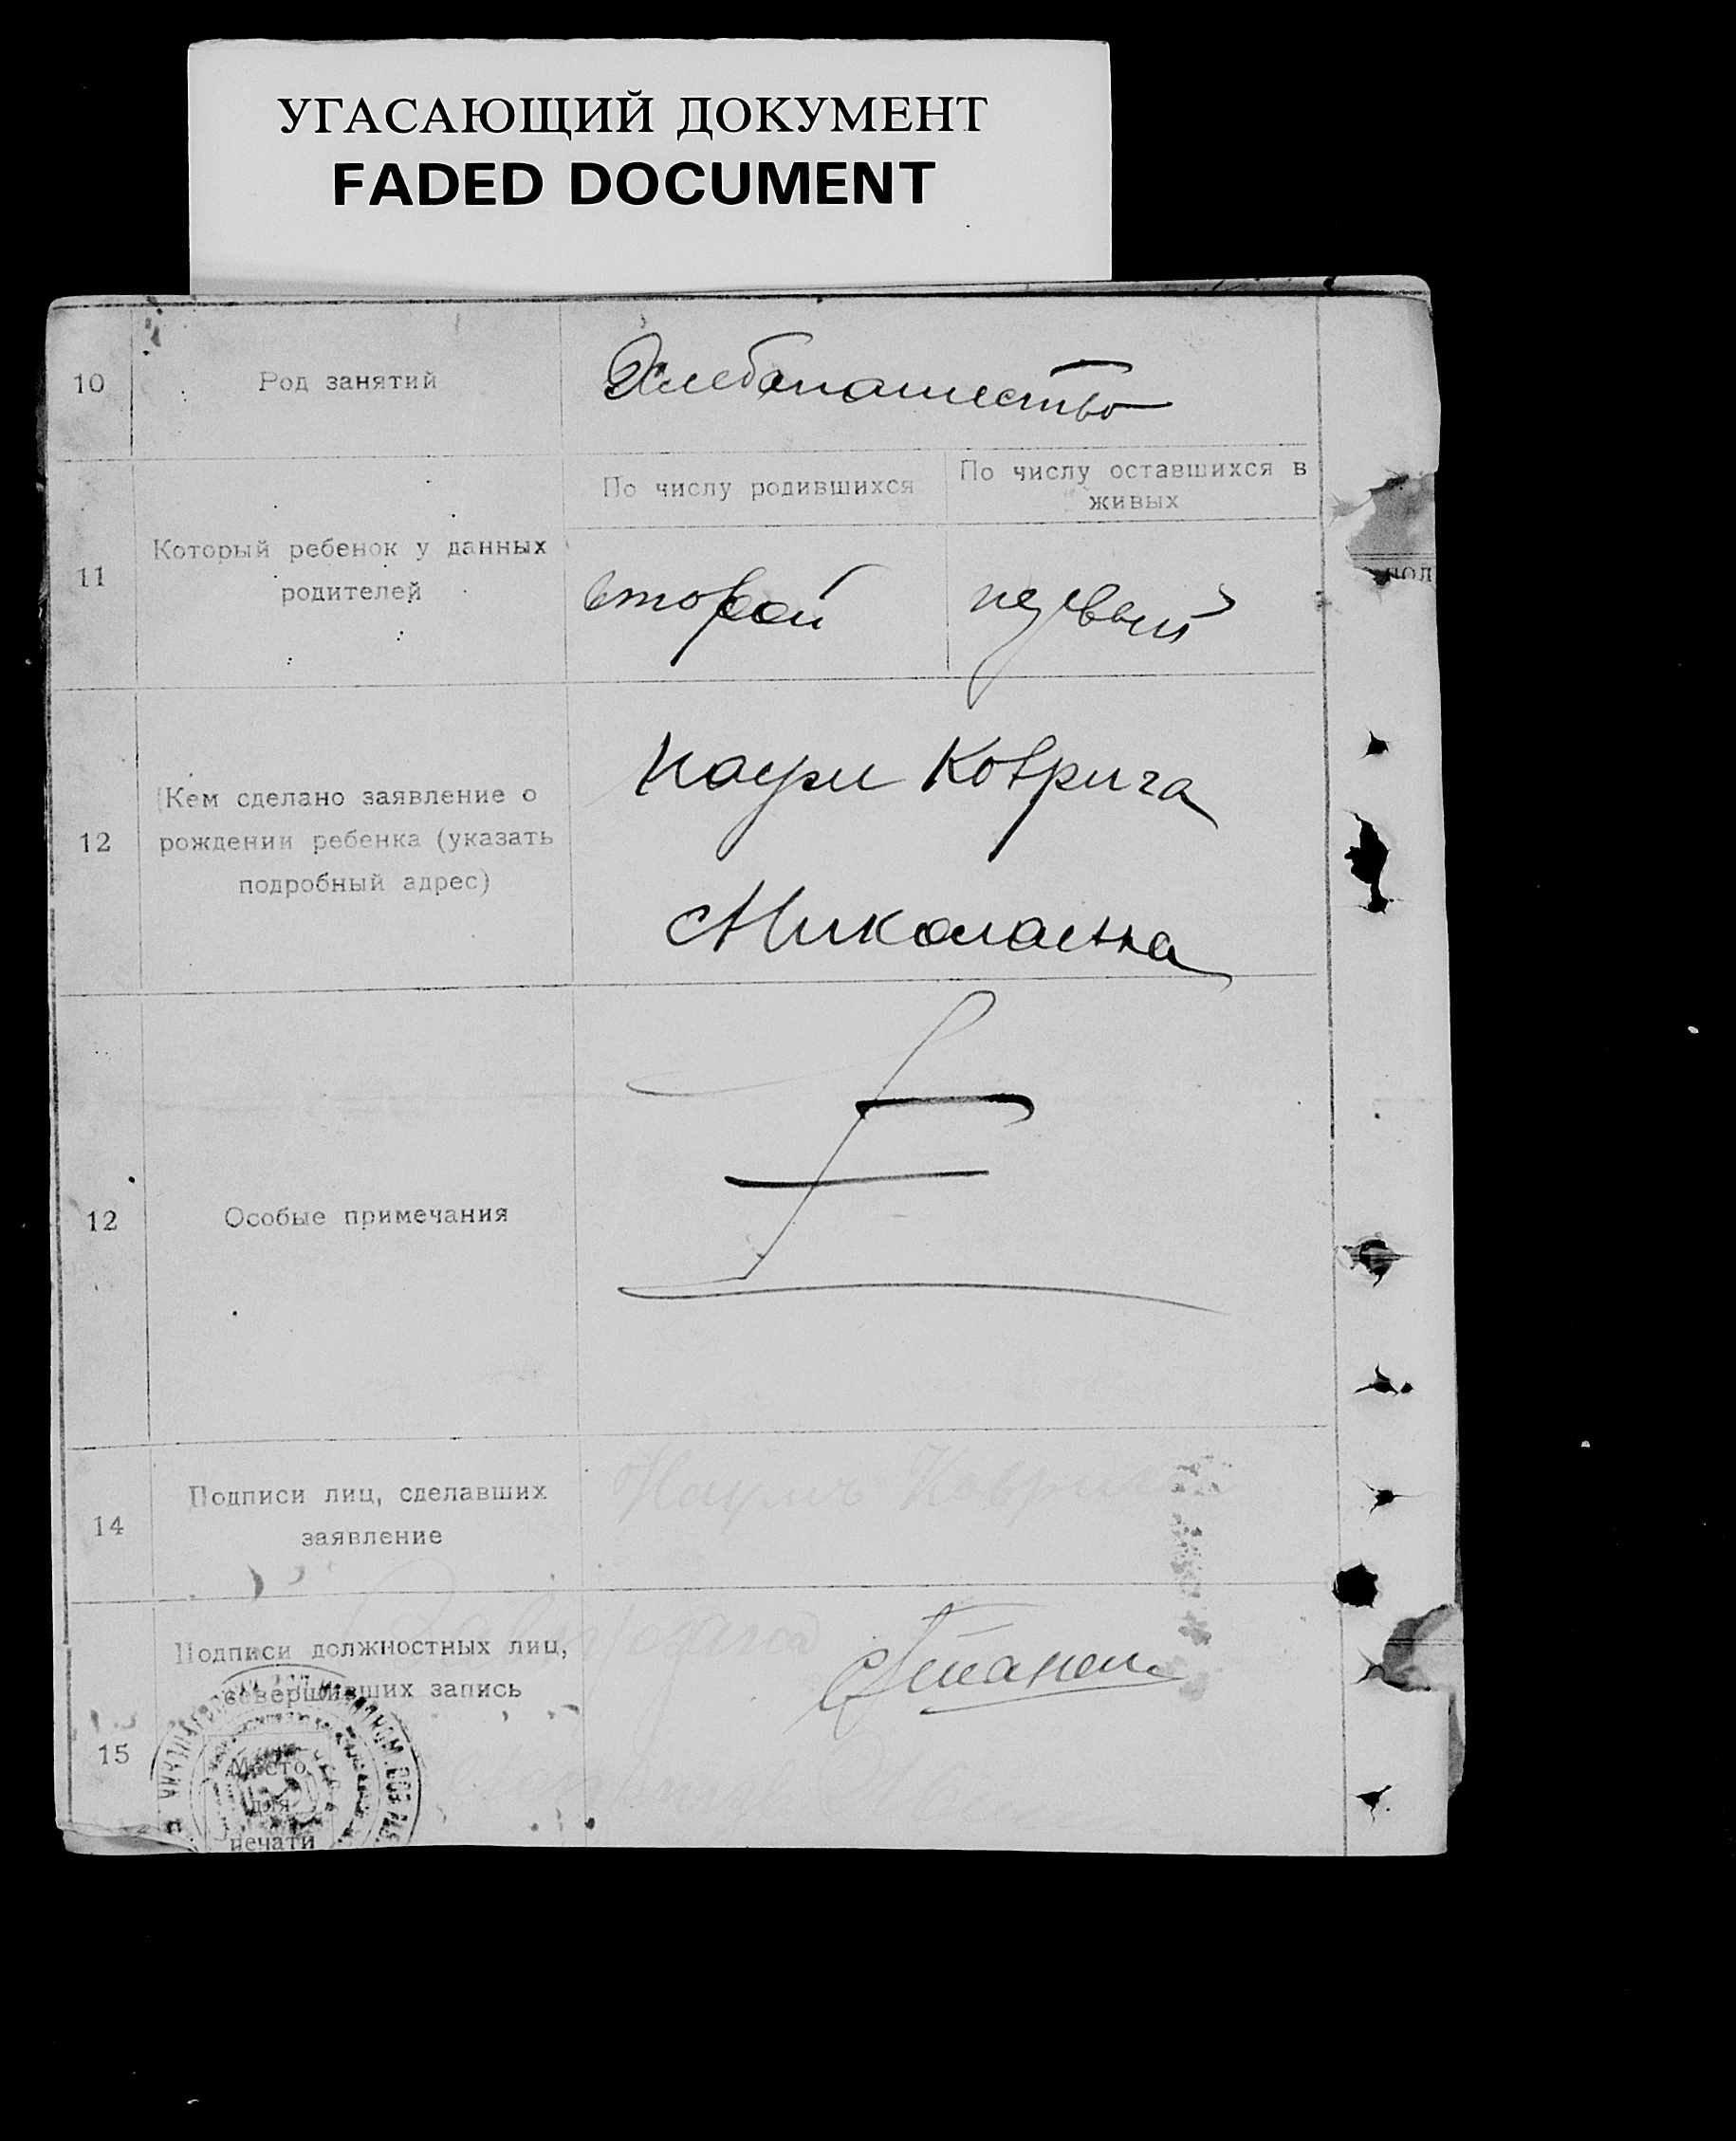 УГАСАЮЩИЙ ДОКУМЕНТ
FADED DOCUMENT
10
Род занятий
Хлебопашество
11
Который ребенок у данных
родителей
По числу родившихся
По числу оставшихся в
живых
второй
первый
12
Кем сделано заявление о
рождении ребенка (указать
подробный адрес)
Наум Коврига
Николаевка
12
Особые примечания
14
Подписи лиц, сделавших
заявление
Наумъ Коврига
15
Подписи должностных лиц,
совершивших запись
Место
для
печати